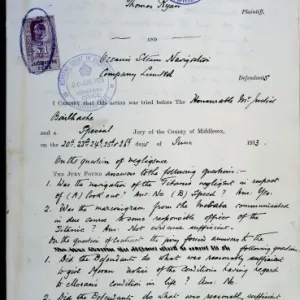 Thomas Ryan
Plaintiff,
AND
Oceanic Steam Navigation
Company Limited
Defendants
I CERTIFY that this action was tried before The Honourable Mr. Justice
Bailhache
and a Special Jury of the County of Middlesex,
on the 20th 23rd 24th 25th & 26th days of June 1913.
On the question of negligence
THE JURY FOUND answers to the following questions:-
1. Was the navigation of the Titanic negligent in respect
of (A) Look out? Ans No (B) Speed? Ans: Yes.
2. Was the marconigram from the Mesaba communicated
in due course to some responsible officer of the
Titanic? Ans: Not evidence sufficient.
On the question of contract the jury found answers to the
following questions
1. Did the Defendants do what was reasonably sufficient
to give Moran notice of the conditions having regard
to Moran's condition in life? Ans: No.
2. Did the Defendants do what was reasonably